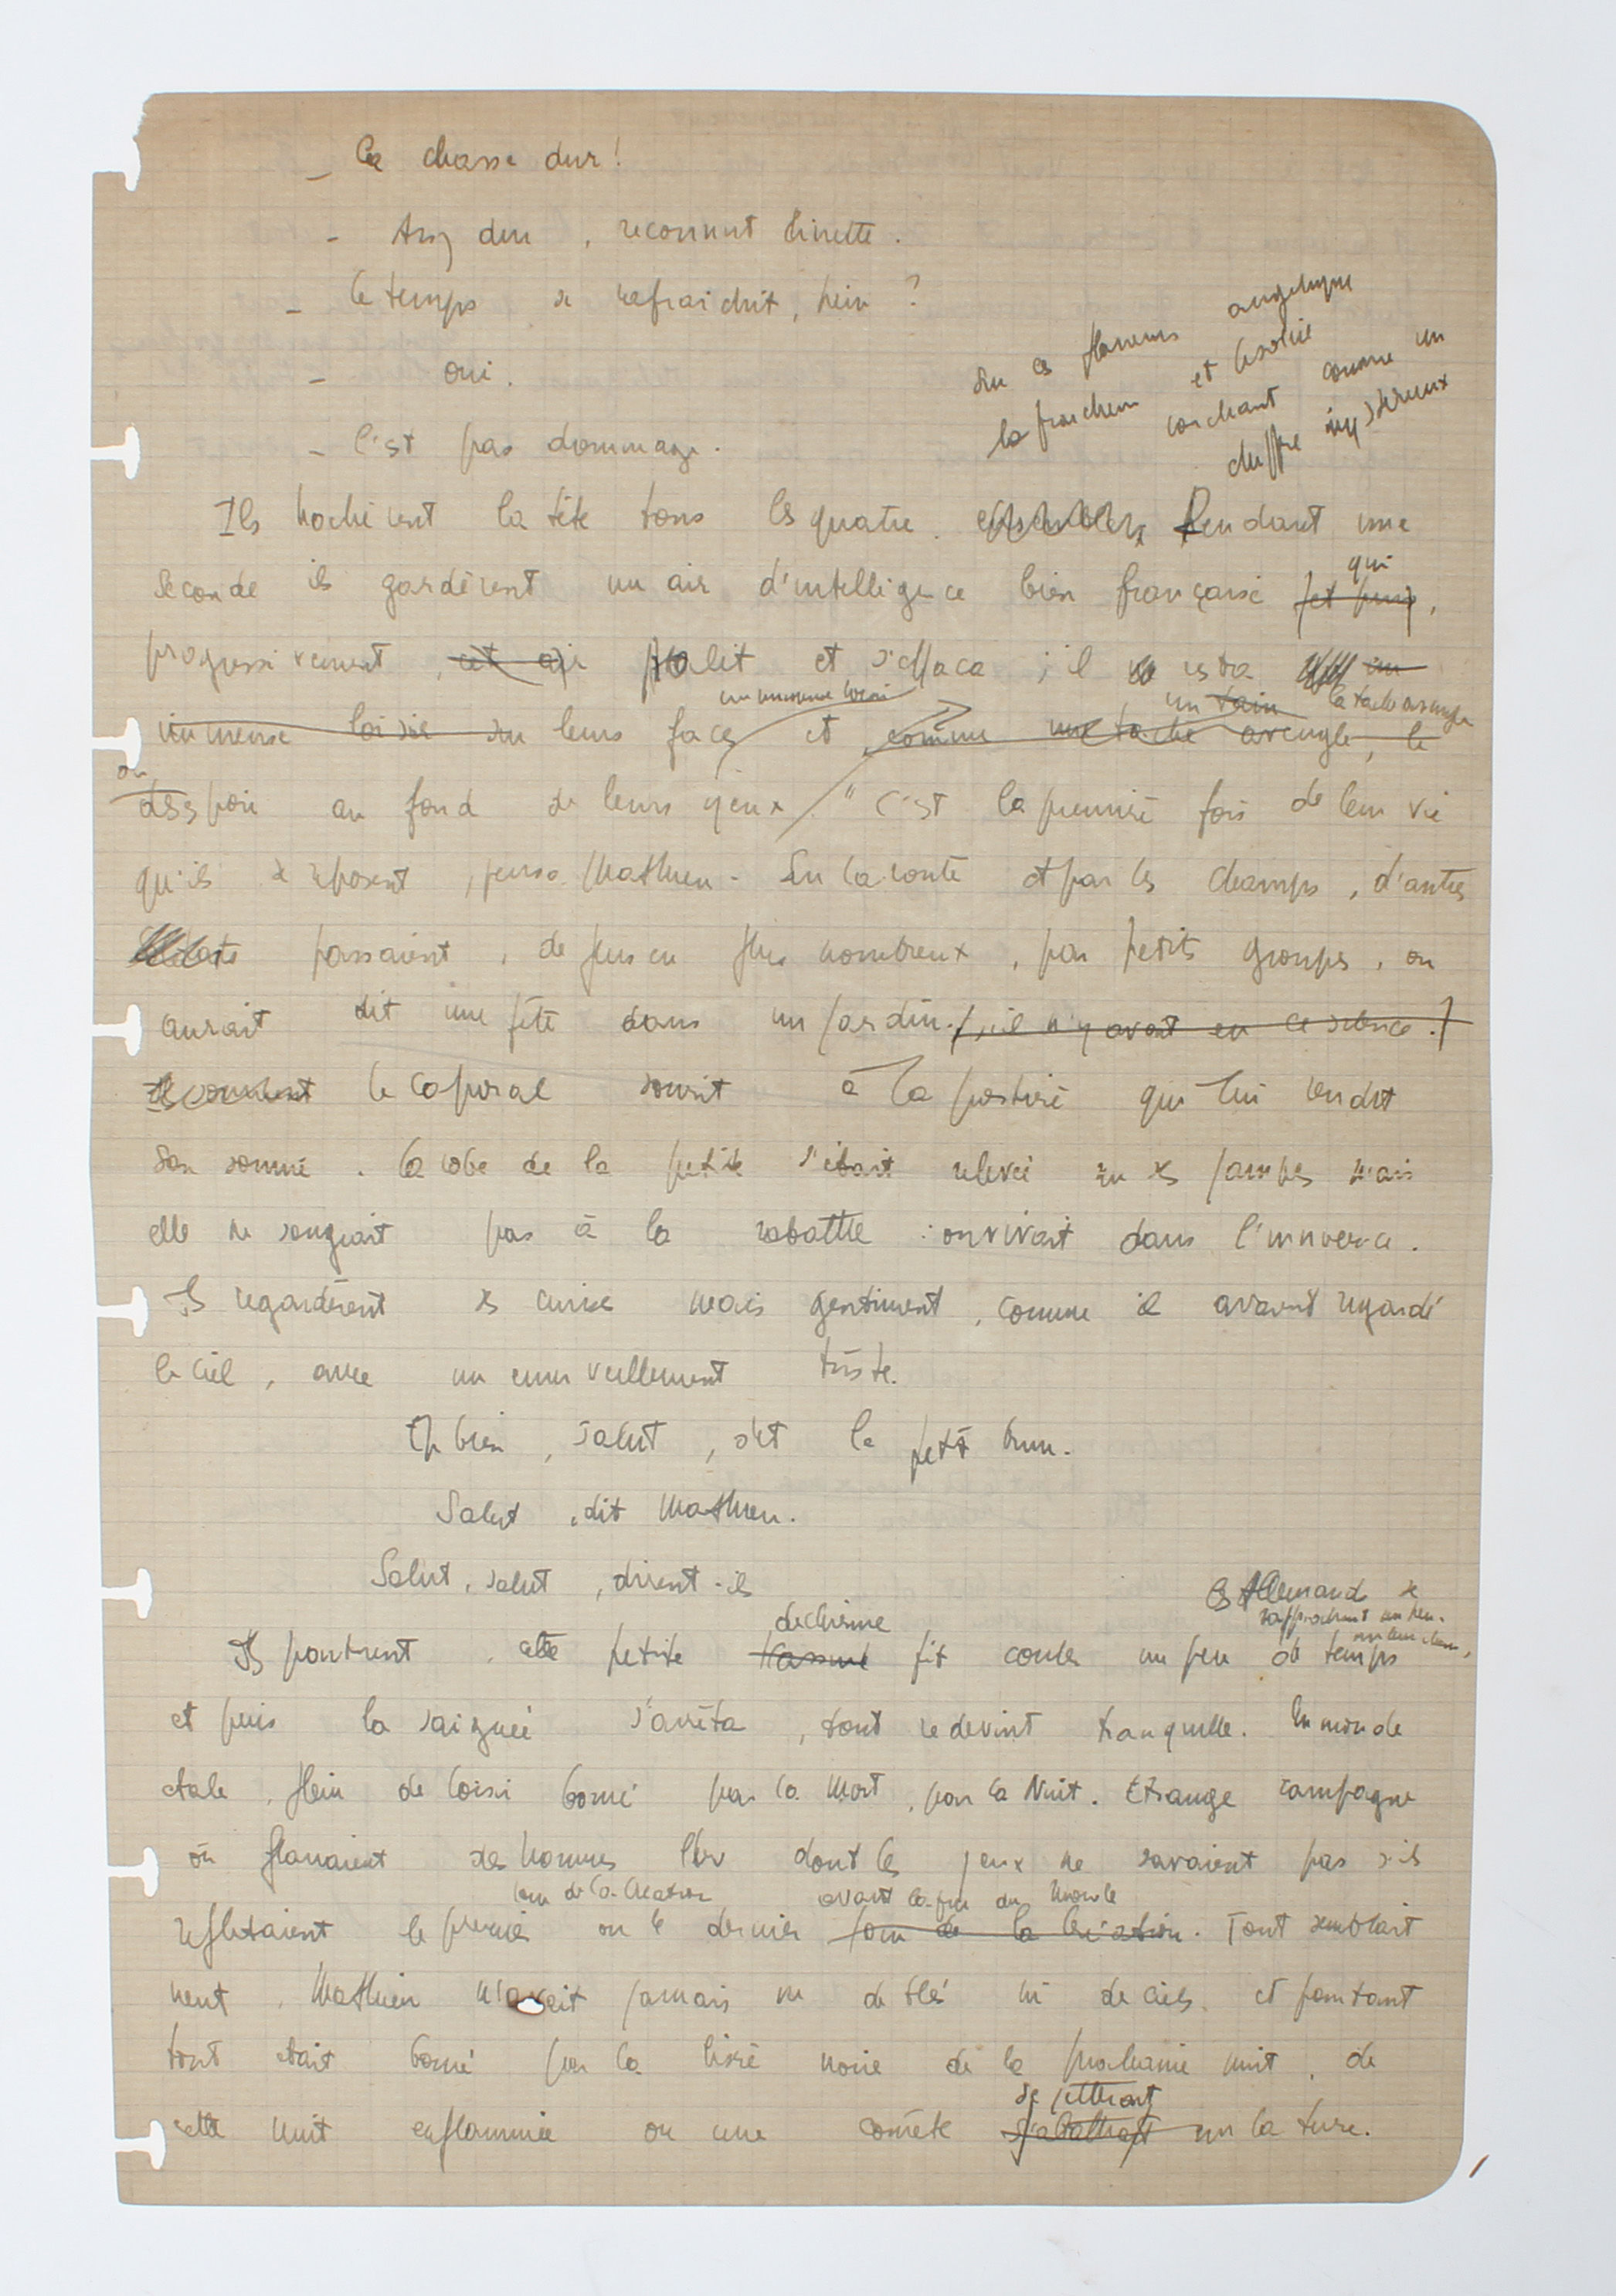 – Ça chasse dur !
– Assez dur, reconnut Pinette.
– Le temps se rafraichit, hein ?
– Oui.
– C'est pas dommage.
sur ces flaneurs angelique
la fraicheur et le soleil
couchant comme un
chiffre mystérieux
Ils hochèrent la tête tous les quatre. ensemble Pendant une
qui
seconde ils gardèrent un air d'intelligence bien française et puis,
progressivement, cet air palit et s'effaca ; il resta un
un immense loisir un tain la tache aveugle
immense loisir sur leurs faces et comme une tache aveugle, le
du
désespoir au fond de leurs yeux. " C'est la première fois de leur vie
qu'ils se reposent, pensa Mathieu. Sur la route et par les champs, d'autres
passaient, de plus en plus nombreux, par petits groupes, on
aurait dit une fête dans un jardin, il n'y avait eu ce silence.
le caporal sourit à la postière qui lui rendit
son sourire. La robe de la petite s'était relevée sur ses jambes mais
elle ne songeait pas à la rabattre : on vivait dans l'innocence.
Ils regardèrent ses cuisses mais gentiment, comme ils avaient regardé
le ciel, avec un emerveillement triste.
Eh bien, salut, dit le petit brun.
Salut, dit Mathieu.
Salut, salut, dirent-ils
Les Allemands se
dechirure rapprochent un peu.
Ils partirent, cette petite fit couler un peu de temps
et puis la saignée s'arrêta, tout redevint tranquille. Un monde
etale, plein de loisir borné par la Mort, par la Nuit. Etrange campagne
où flanaient des hommes dont les yeux ne savaient pas s'ils
jour de la Creation avant la fin du Monde
refletaient le premier ou le dernier jour de la Création. Tout semblait
neuf, Mathieu n'avait jamais vu de blés ni de ciels et pourtant
tout etait borné par la lisière noire de la prochaine nuit, de
se jetterait
cette nuit enflammée ou une comète s'abattrait sur la terre.